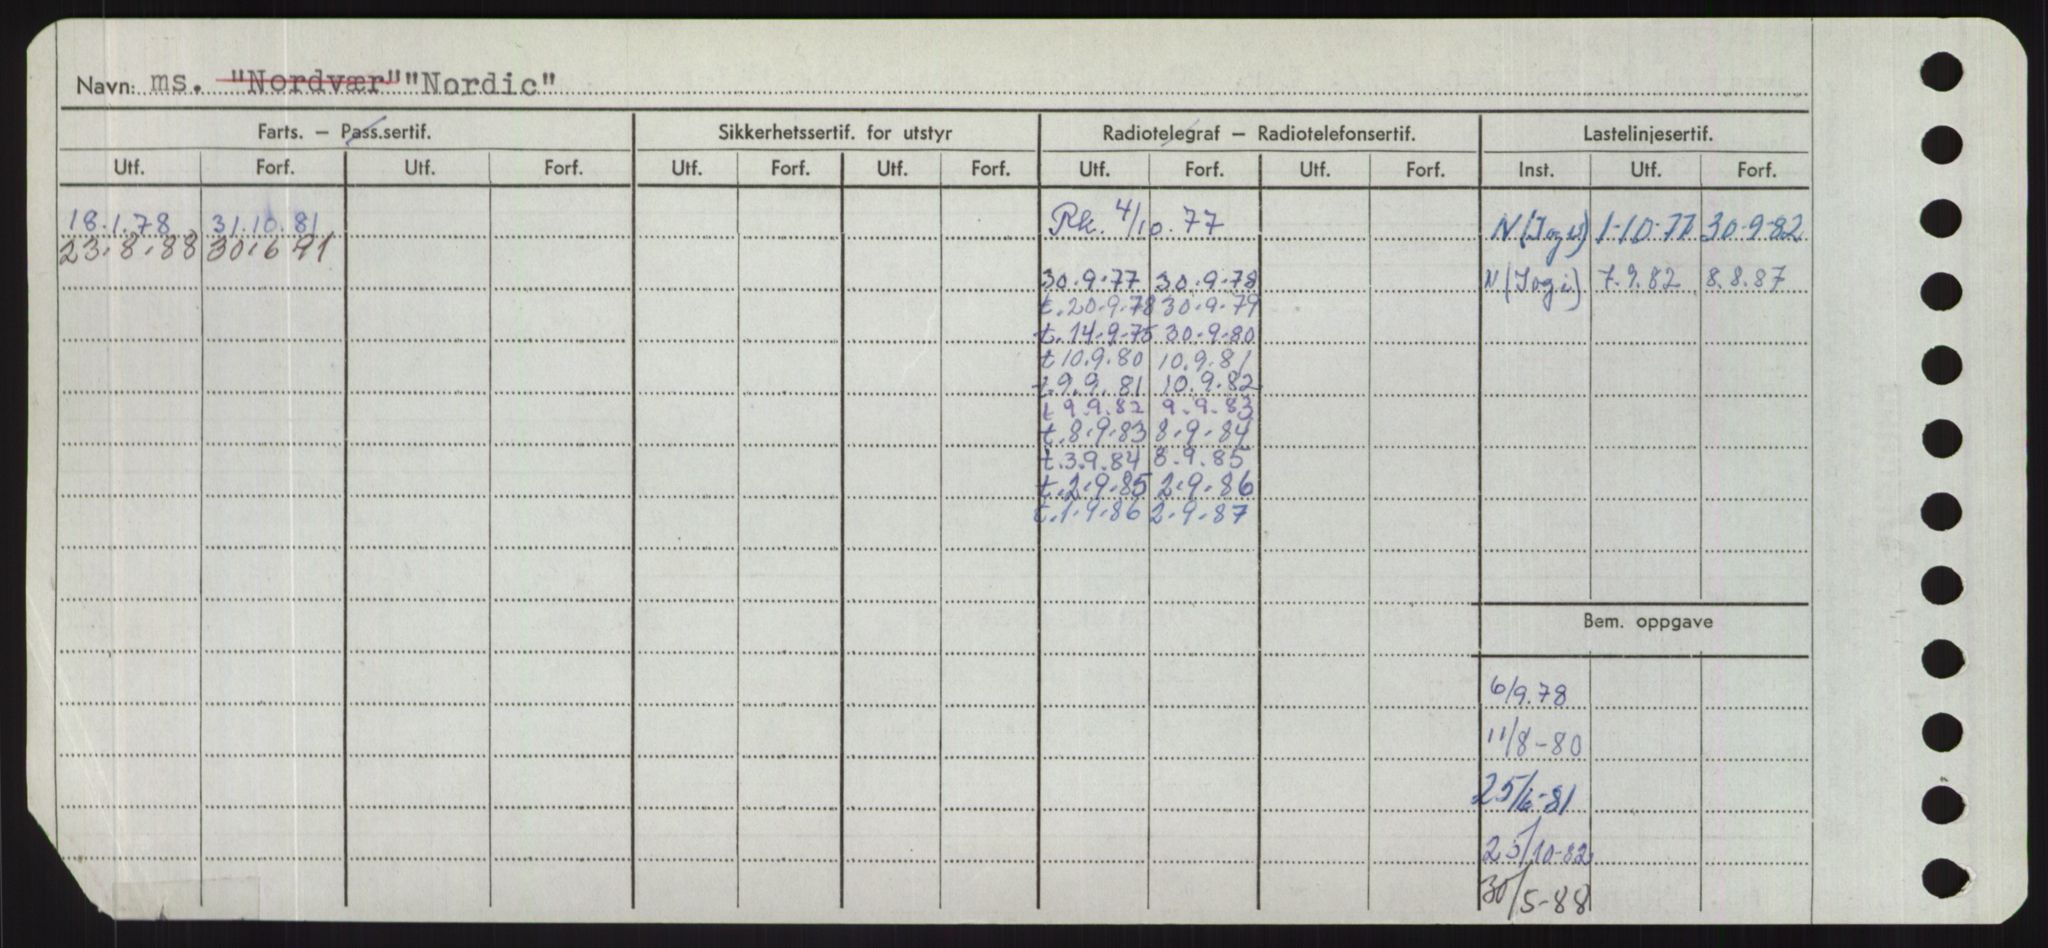 Navn: ms. "Nordvær" "Nordic"
Farts. – Pass.sertif. Sikkerhetssertif. for utstyr Radiotelegraf – Radiotelefonsertif. Lastelinjesertif.
Utf. Forf. Utf. Forf. Utf. Forf. Utf. Forf. Utf. Forf. Utf. Forf. Inst. Utf. Forf.
18.1.78 31.10.81 Rk. 4/10.77 N 1-10-77 30-9-82
23.8.88 30.6 91
30.9.77 30.9.78 N 7.9.82 8.8.87
t.20.9.78 30.9.79
t.14.9.75 30.9.80
t 10.9.80 10.9.81
t.9.9.81 10.9.82
t 9.9.82 9.9.83
t.8.9.83 8.9.84
t.3.9.84 8.9.85
t.2.9.85 2.9.86
t.1.9.86 2.9.87
Bem. oppgave
6/9.78
11/8-80
25/6-81
25/10-82
30/5-88